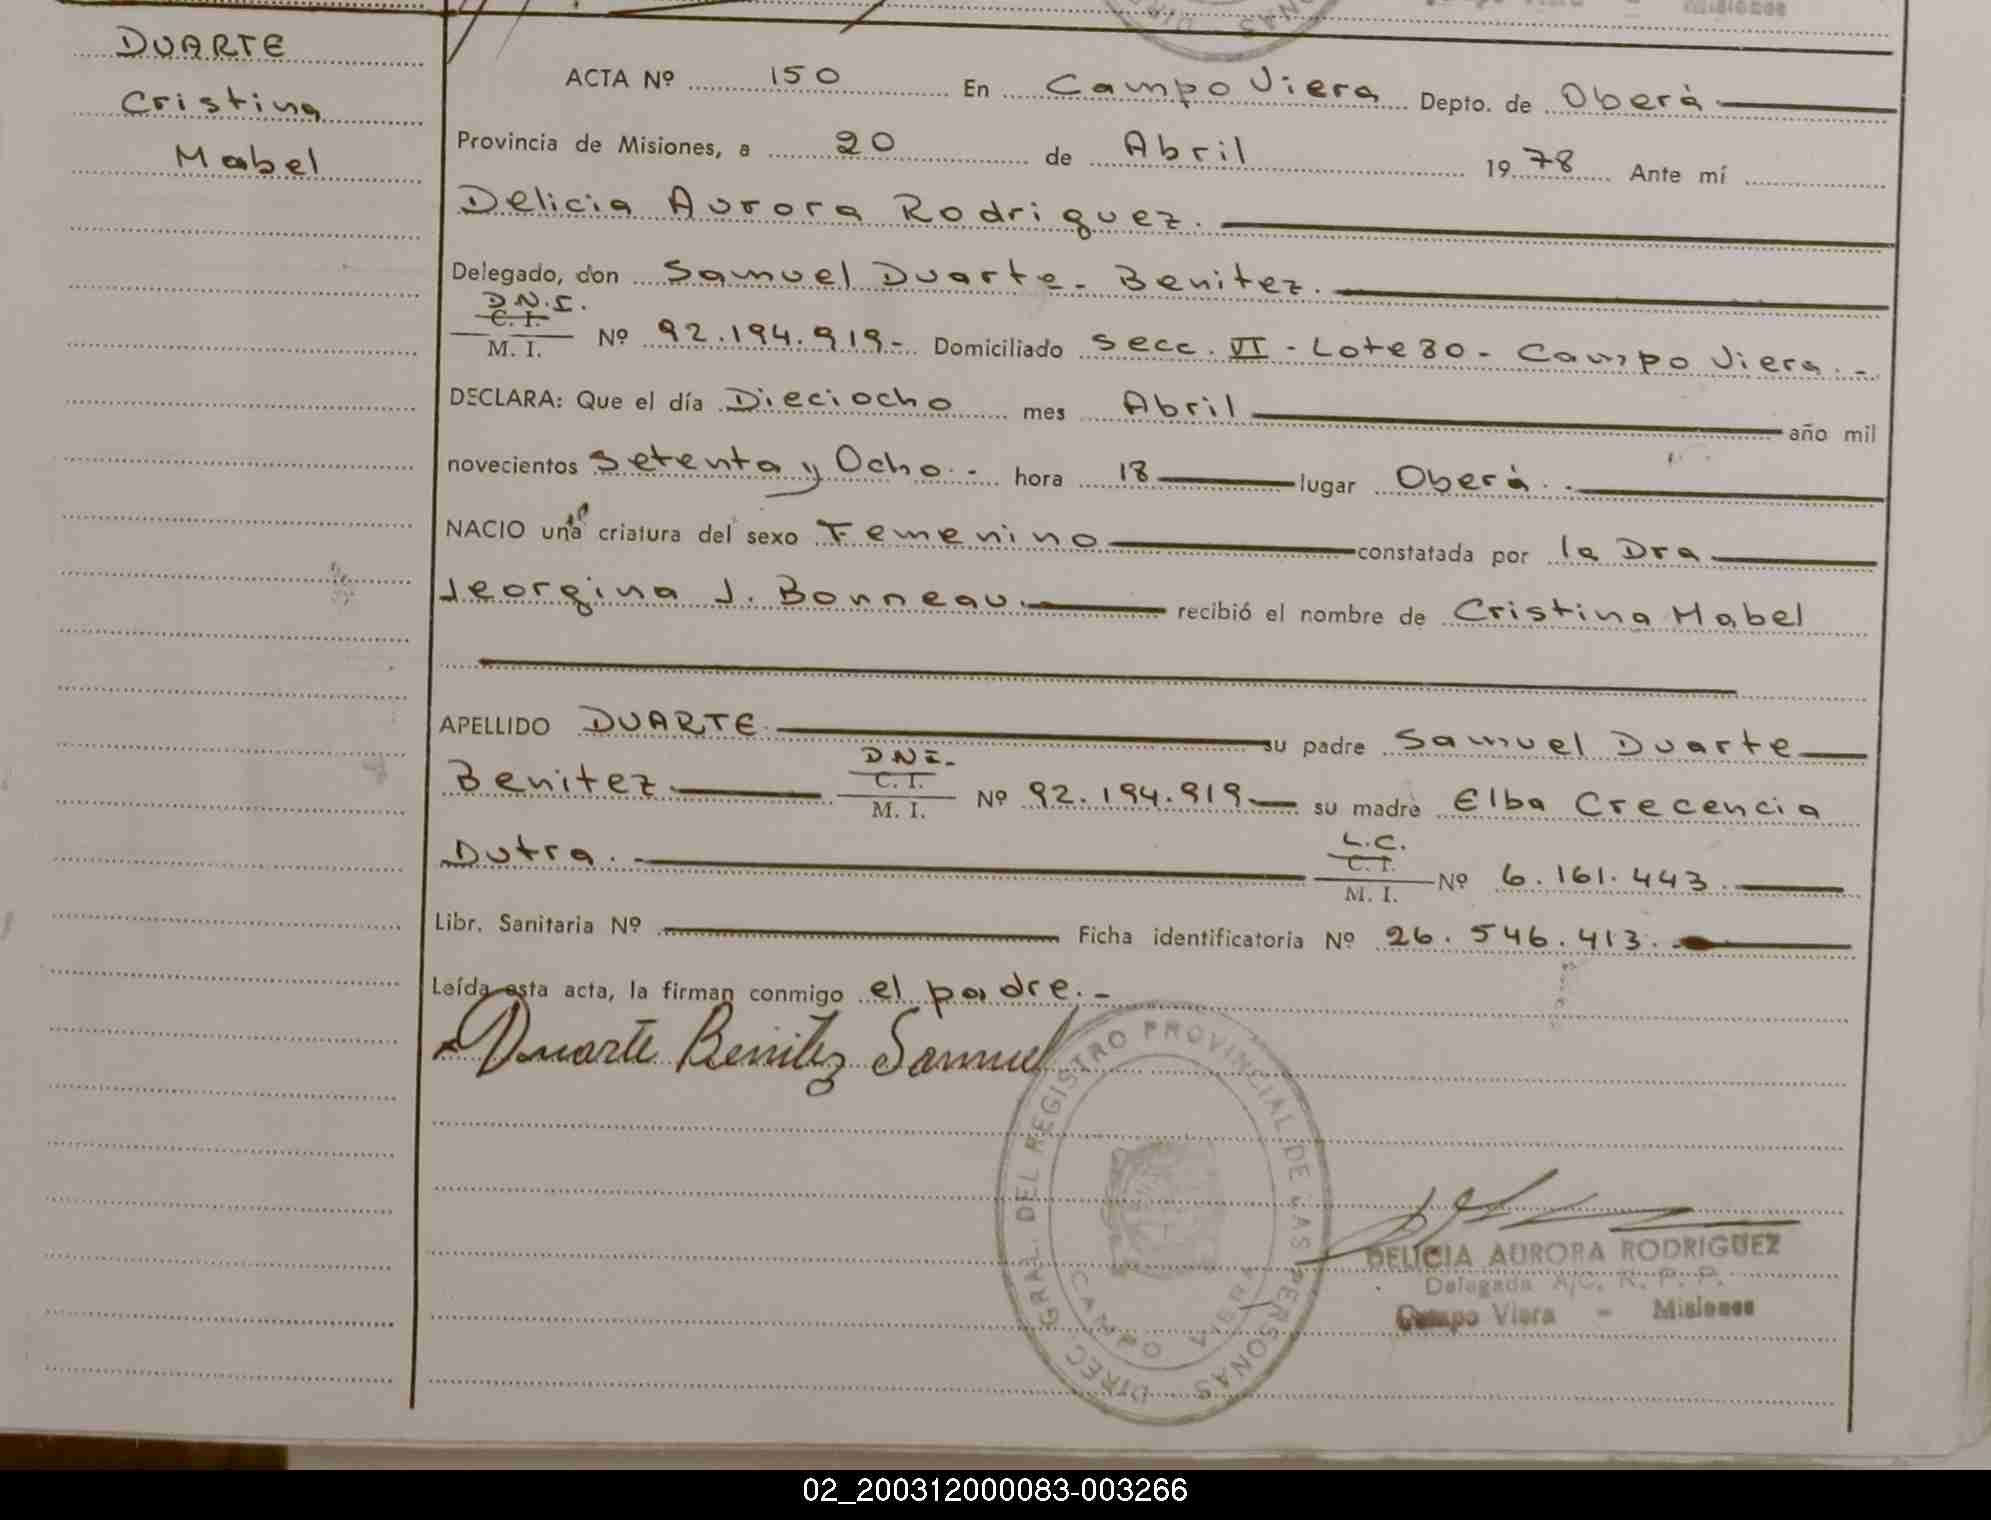 Misiones
DUARTE
Cristina
Mabel
ACTA Nº 150 En Campo Viera Depto. de Oberá
Provincia de Misiones, a 20 de Abril 1978 Ante mí
Delicia Aurora Rodriguez.
Delegado, don Samuel Duarte - Benitez.
D.N.I.
C. I.
M. I. Nº 92.194.919- Domiciliado Secc. VI - Lote 80 - Campo Viera. -
DECLARA: Que el día Dieciocho mes Abril año mil
novecientos Setenta y Ocho.- hora 18 lugar Oberá.
NACIO una criatura del sexo Femenino constatada por la Dra
Jeorgina J. Bonneau. recibió el nombre de Cristina Mabel
APELLIDO DUARTE su padre Samuel Duarte
Benitez
DNI.-
C. I.
M. I. Nº 92.194.919 su madre Elba Crecencia
Dutra.
L.C.
C. I.
M. I. Nº 6.161.443.
Libr. Sanitaria Nº Ficha identificatoria Nº 26.546.413.
Leída esta acta, la firman conmigo el padre.-
Duarte Benitez Samuel
DIREC. GRAL. DEL REGISTRO PROVINCIAL DE LAS PERSONAS
CAMPO VIERA
DELICIA AURORA RODRIGUEZ
Delegada A/C. R. P. P.
Campo Viera - Misiones
02_200312000083-003266